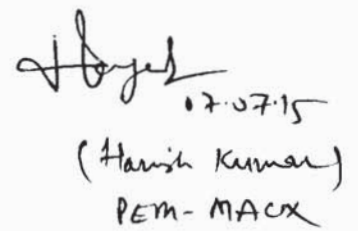 07.07.15
(Harish Kumar)
PEM-MAUX